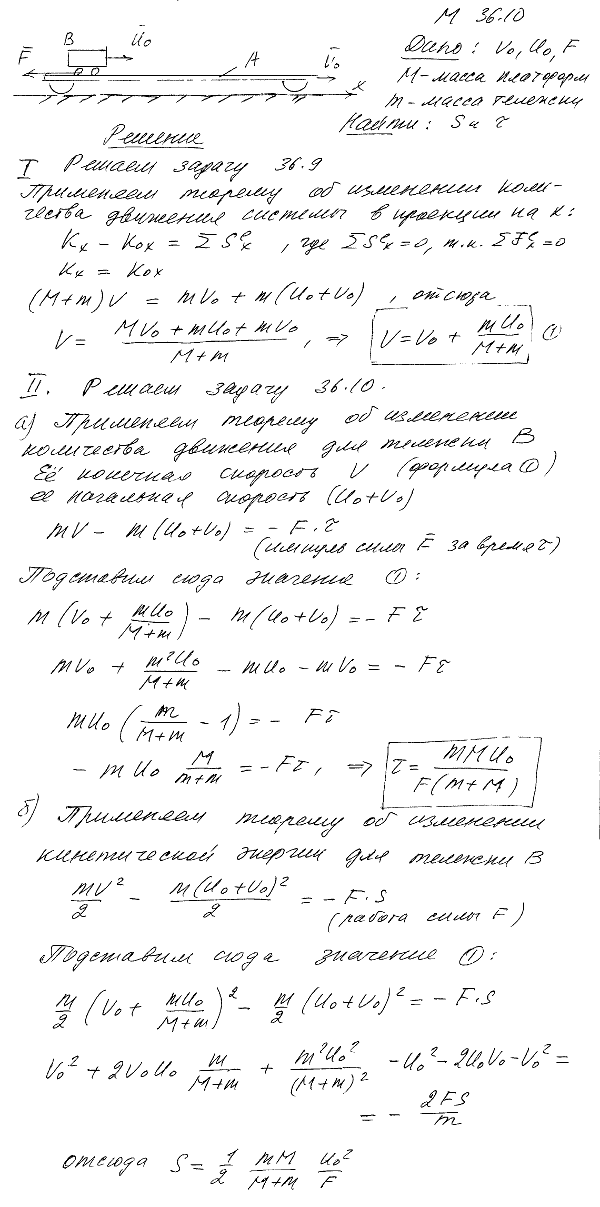 М 36.10
Дано: V₀, U₀, F
M-масса платформ
m-масса тележки
Найти: S и τ
F̄ B Ū₀ A Ū₀ x
Решение
I Решаем задачу 36.9
Применяем теорему об изменении коли-
чества движения системы в проекции на x:
Kₓ - K₀ₓ = ΣSₓᵉ , где ΣSₓᵉ=0, т.к. ΣFₓᵉ=0
Kₓ = K₀ₓ
(M+m)V = mV₀ + m(U₀+V₀) , отсюда
V = (MV₀ + mU₀ + mV₀)/(M+m) , => V=V₀ + mU₀/(M+m) ①
II. Решаем задачу 36.10.
а) Применяем теорему об изменении
количества движения для тележки В
Её конечная скорость V (формула ①)
ее начальная скорость (U₀+V₀)
mV - m(U₀+V₀) = - F·τ
(импульс силы F̄ за время τ)
Подставим сюда значение ①:
m(V₀ + mU₀/(M+m)) - m(U₀+V₀) = - Fτ
mV₀ + m²U₀/(M+m) - mU₀ - mV₀ = - Fτ
mU₀(m/(M+m) - 1) = - Fτ
- mU₀ M/(m+m) = -Fτ, => τ = mMU₀/(F(m+M))
б) Применяем теорему об изменении
кинетической энергии для тележки В
mV²/2 - m(U₀+V₀)²/2 = - F·S
(работа силы F)
Подставим сюда значение ①:
m/2 (V₀ + mU₀/(M+m))² - m/2 (U₀+V₀)² = - F·S
V₀² + 2V₀U₀ m/(M+m) + m²U₀²/(M+m)² - U₀² - 2U₀V₀ - V₀² =
= - 2FS/m
отсюда S = 1/2 mM/(M+m) U₀²/F